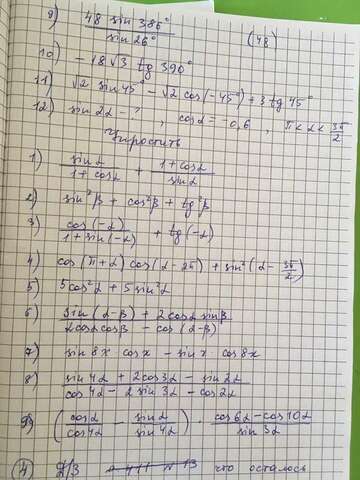 9) 48 sin 386° / sin 26° (48)
10) - 18√3 tg 390°
11) √2 sin 45° - √2 cos(-45°) + 3 tg 45°
12) sin 2α - ? , cos α = -0,6 , π < α < 3π/2
Упростить
1) sin α / 1 + cos α + 1 + cos α / sin α
2) sin²β + cos²β + tg²β
3) cos(-α) / 1 + sin(-α) + tg(-α)
4) cos(π+α) cos(α-2π) + sin²(α - 3π/2)
5) 5cos²α + 5 sin²α
6) sin(α-β) + 2cosα sinβ / 2cosα cosβ - cos(α-β)
7) sin 8x · cos x - sin x · cos 8x
8) sin 4α + 2cos3α - sin 2α / cos 4α - 2 sin 3α - cos 2α
9) (cosα / cos4α - sinα / sin 4α) · cos6α - cos10α / sin 3α
4 Д/З 13 что осталось